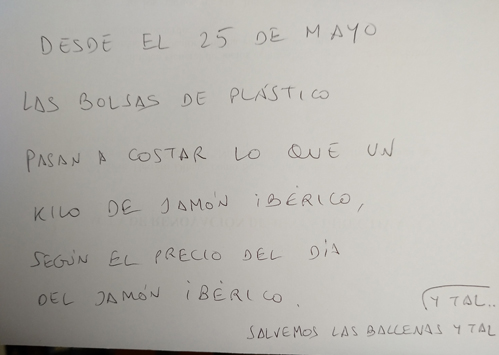 DESDE EL 25 DE MAYO
LAS BOLSAS DE PLÁSTICO
PASAN A COSTAR LO QUE UN
KILO DE JAMÓN IBÉRICO,
SEGÚN EL PRECIO DEL DÍA
DEL JAMÓN IBÉRICO.
Y TAL..
SALVEMOS LAS BALLENAS Y TAL